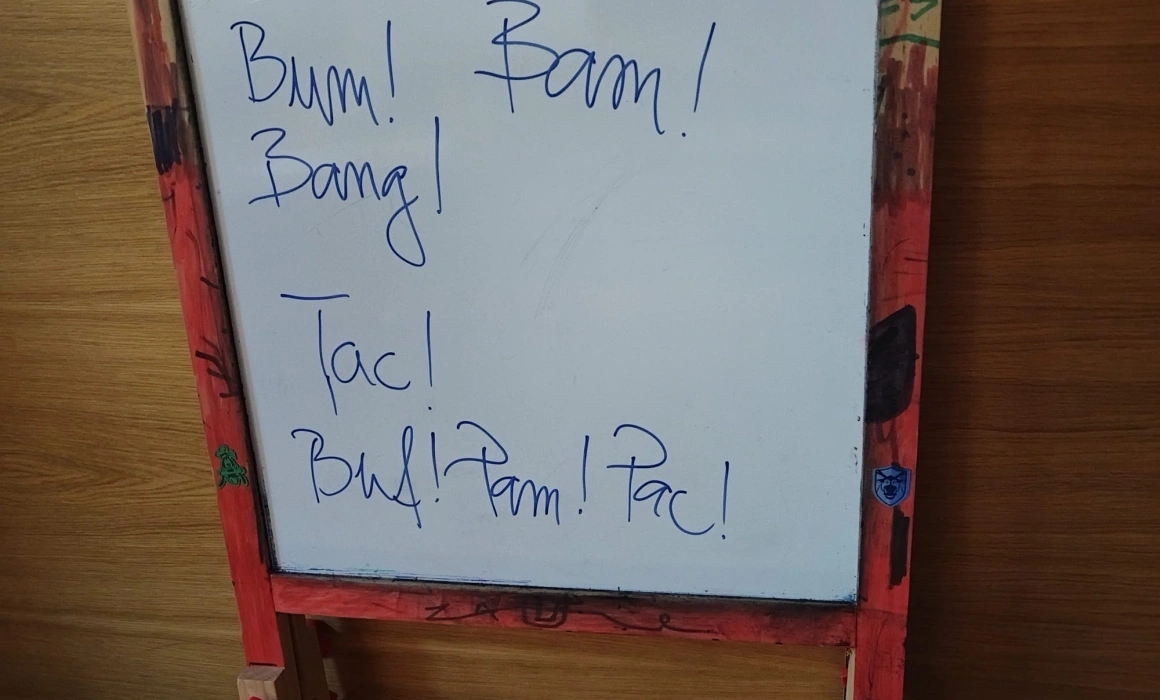 Bum! Bam!
Bang!
Tac!
Buf! Pam! Pac!